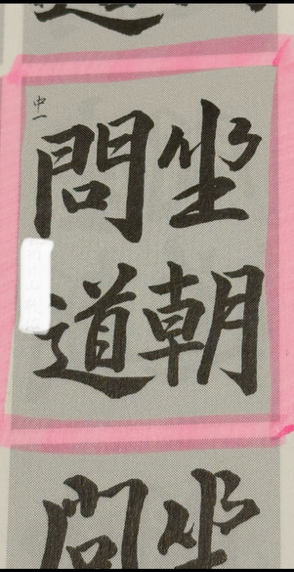 坐朝
問道
中一
坐
問